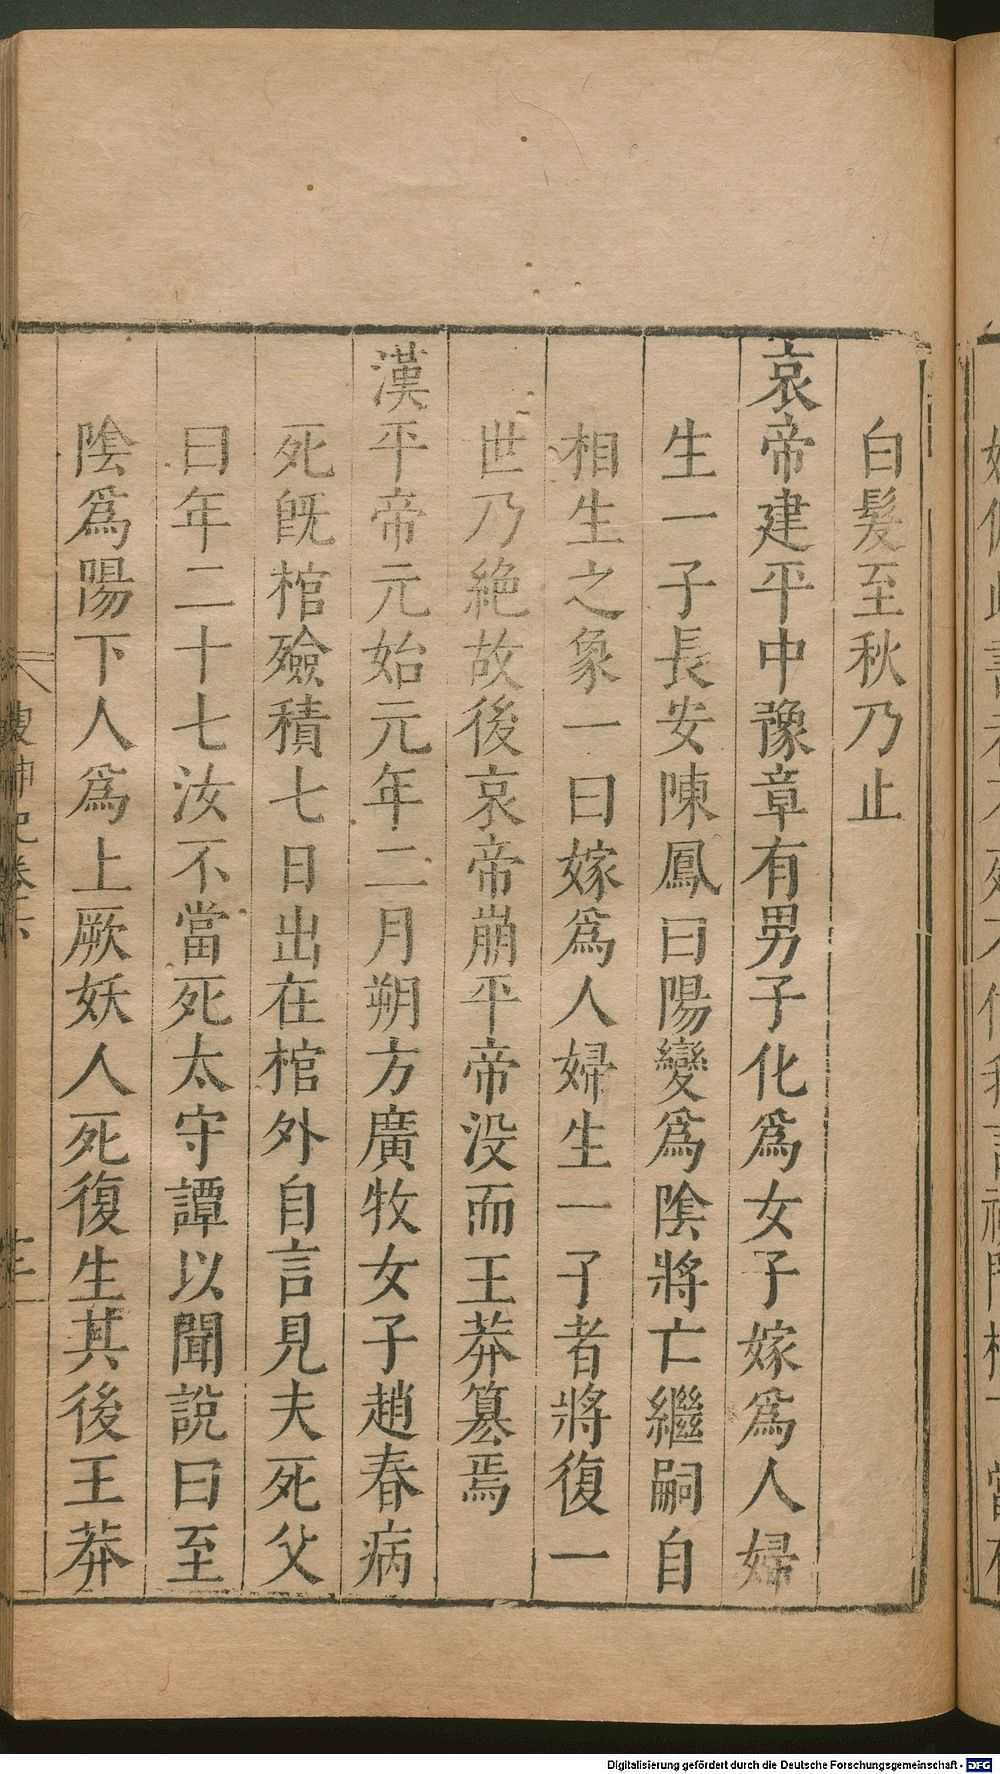 白髮至秋乃止
哀帝建平中豫章有男子化爲女子嫁爲人婦
生一子長安陳鳳曰陽變爲陰將亡繼嗣自
相生之象一曰嫁爲人婦生一子者將復一
世乃絶故後哀帝崩平帝没而王莽篡焉
漢平帝元始元年二月朔方廣牧女子趙春病
死旣棺殮積七日出在棺外自言見夫死父
曰年二十七汝不當死太守譚以聞說曰至
陰爲陽下人爲上厥妖人死復生其後王莽
搜神記卷六
Digitalisierung gefördert durch die Deutsche Forschungsgemeinschaft - DFG